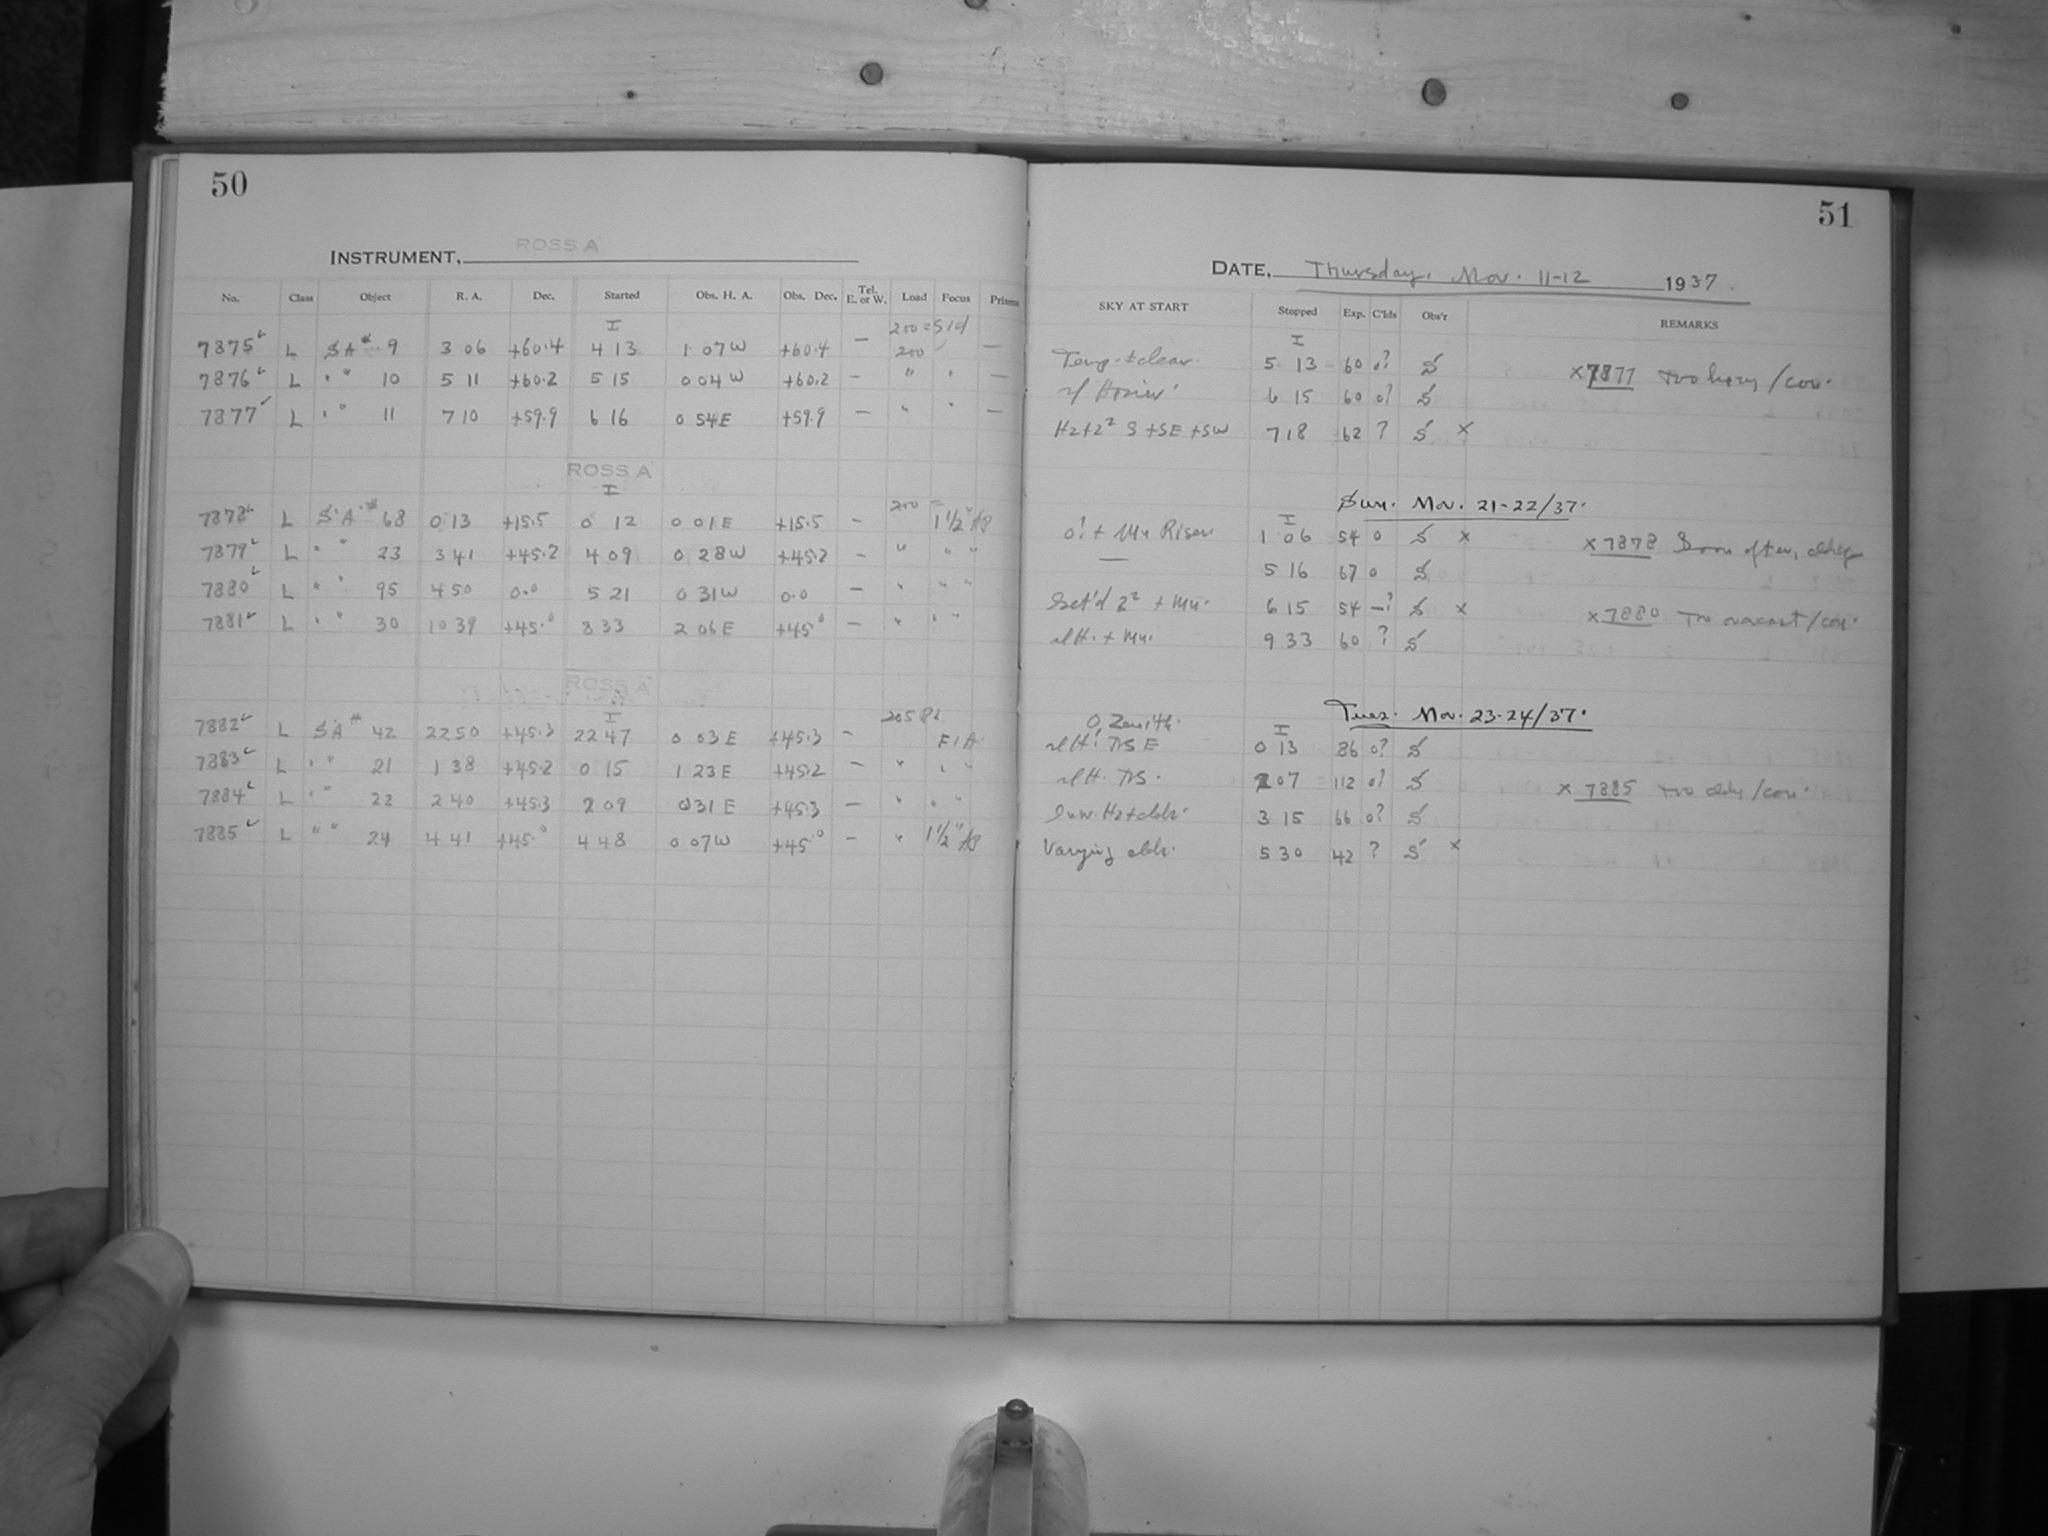 50
INSTRUMENT, ROSS A
No. Class Object R. A. Dec. Started Obs. H. A. Obs. Dec. Tel. E. or W. Load Focus Prisms
I 200 =
7875 L SA# 9 3 06 +60.4 4 13 1 07 W +60.4 — 200 —
7876 L " " 10 5 11 +60.2 5 15 0 04 W +60.2 — " " —
7877 L " " 11 7 10 +59.9 6 16 0 54 E +59.9 — " " —
ROSS A
I 200 =
7878 L S.A.# 68 0 13 +15.5 0 12 0 01 E +15.5 — 1 1/2"
7879 L " " 23 3 41 +45.2 4 09 0 28 W +45.2 — " " "
7880 L " " 95 4 50 0.0 5 21 0 31 W 0.0 — " " "
7881 L " " 30 10 39 +45.0 8 33 2 06 E +45.0 — " " "
ROSS A
I 205
7882 L SA# 42 22 50 +45.3 22 47 0 03 E +45.3 —
7883 L " " 21 1 38 +45.2 0 15 1 23 E +45.2 — " " "
7884 L " " 22 2 40 +45.3 2 09 0 31 E +45.3 — " " "
7885 L " " 24 4 41 +45.0 4 48 0 07 W +45.0 — " 1 1/2"
51
DATE, Thursday. Nov. 11-12 1937.
SKY AT START Stopped Exp. C'lds Obs'r REMARKS
I
clear. 5 13 60 0? S x 7877 too /con.
6 15 60 0? S
Hz+z² S + SE + SW 7 18 62 ? S x
Sun. Nov. 21-22/37.
I
0! + Mn Risen 1 06 54 0 S x x 7878 Soon after,
— 5 16 67 0 S
z² + Mn. 6 15 54 —? S x x 7880 Too overcast/con.
+ Mn. 9 33 60 ? S
Tues. Nov. 23-24/37.
0, Zenith. I
0 13 86 0? S
2 07 112 0? S x 7885 too cldy/con.
3 15 66 0? S
Varying clds. 5 30 42 ? S x